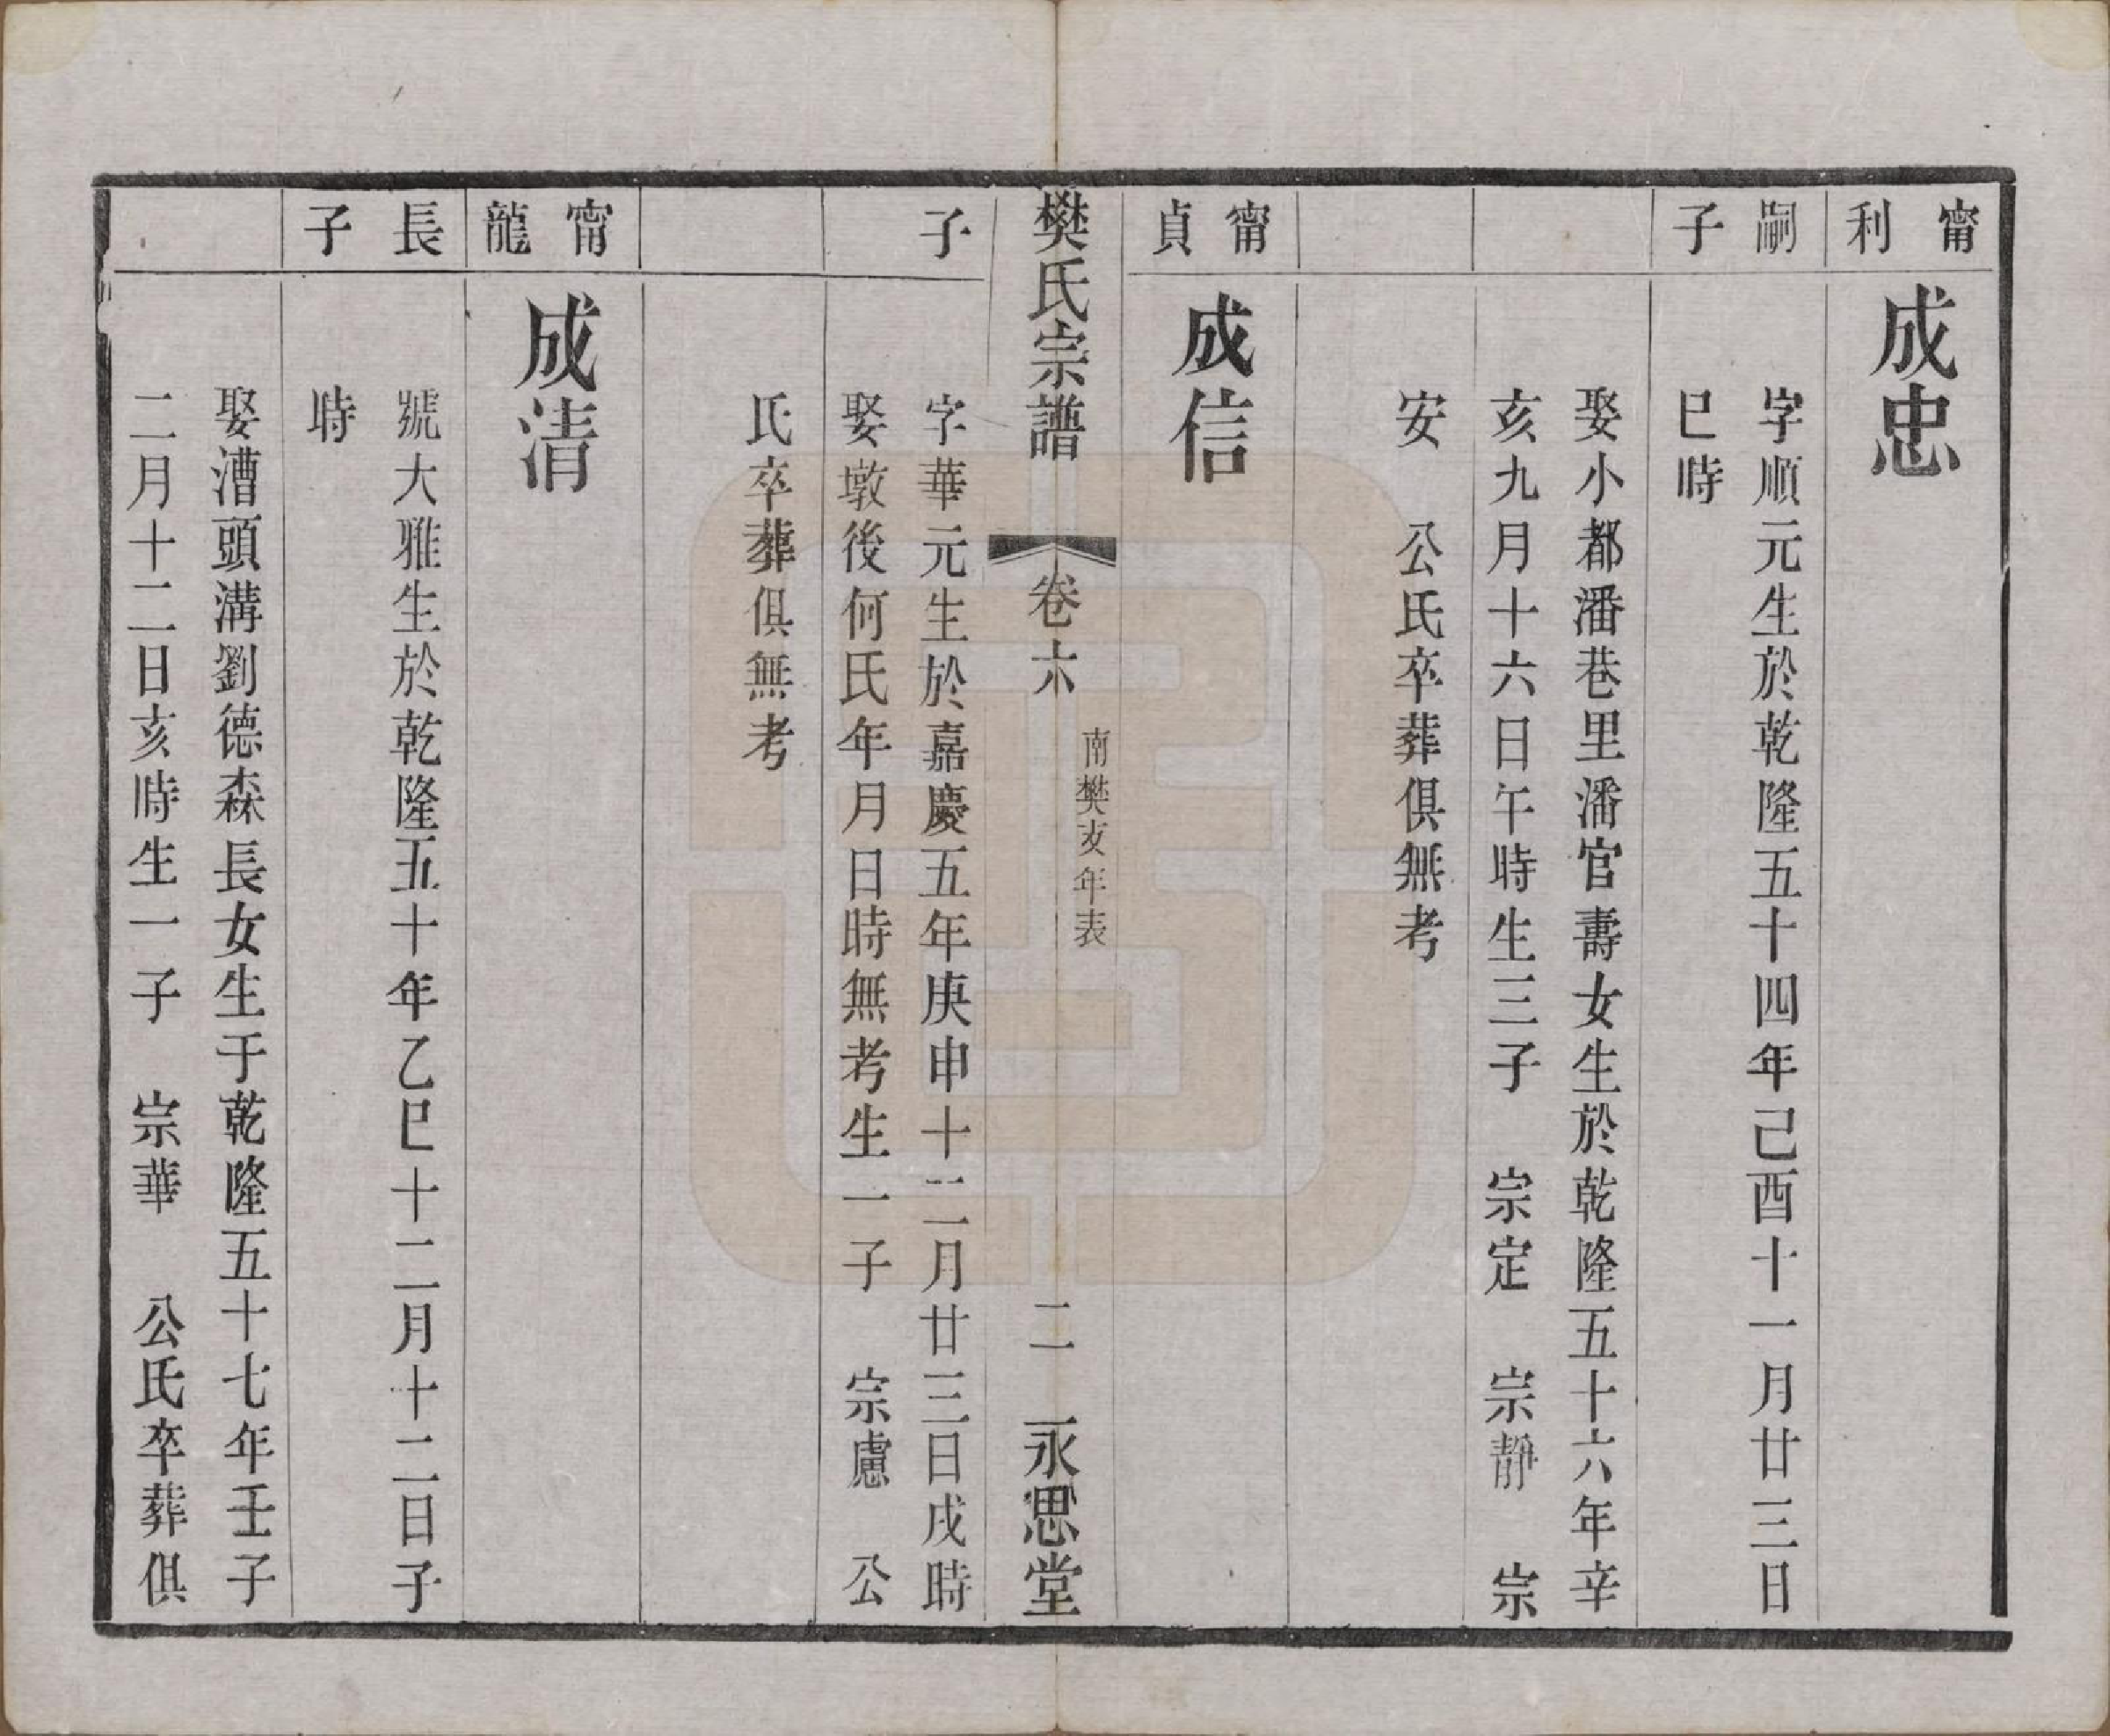 甯利
成忠
嗣子
字順元生於乾隆五十四年己酉十一月廿三日
巳時
娶小都潘巷里潘官壽女生於乾隆五十六年辛
亥九月十六日午時生三子　宗定　宗靜　宗
安　公氏卒葬俱無考
甯貞
成信
樊氏宗譜
卷六
南樊友年表
二
永思堂
子
字華元生於嘉慶五年庚申十二月廿三日戌時
娶墩後何氏年月日時無考生一子　宗慮　公
氏卒葬俱無考
甯龍
成清
長子
號大雅生於乾隆五十年乙巳十二月十二日子
時
娶漕頭溝劉德森長女生于乾隆五十七年壬子
二月十二日亥時生一子　宗華　公氏卒葬俱